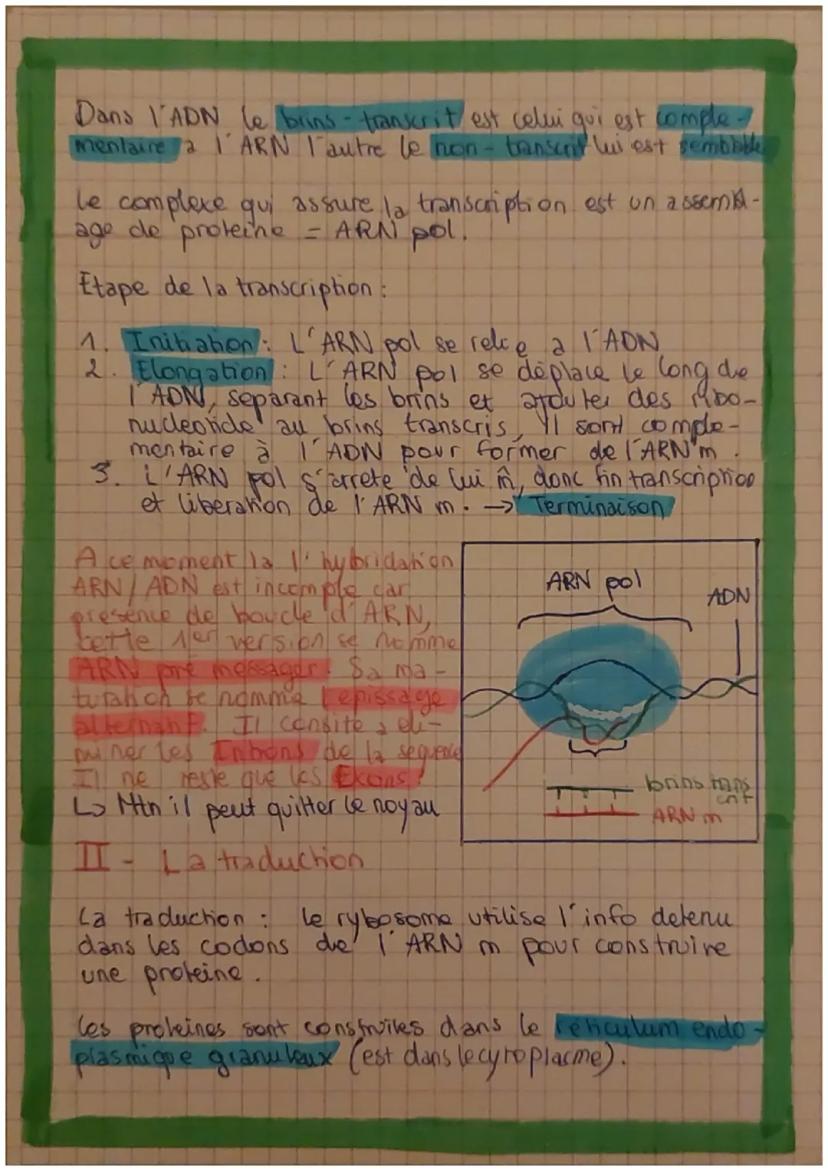 Dans l'ADN le brins-transcrit est celui qui est comple-
mentaire a l'ARN l'autre le non-transcrit lui est semblable
le complexe qui assure la transcription est un assembl-
age de proteine = ARN pol.
Etape de la transcription :
1. Initiation : L'ARN pol se relie a l'ADN
2. Elongation : L'ARN pol se déplace le long de
l'ADN, séparant les brins et ajouter des ribo-
nucleotide au brins transcris, il sont comple-
mentaire à l'ADN pour former de l'ARN m.
3. L'ARN pol s'arrete de lui m̂, donc fin transcription
et liberation de l'ARN m. → Terminaison
A ce moment la l'hybridation
ARN/ADN est incomple car
presence de boucle d'ARN,
cette 1er version se nomme
ARN pré messager. Sa ma-
turation se nomme l'epissage
alternant. Il consite a eli-
miner les Introns de la sequence
Il ne reste que les Exons!
↳ Mtn il peut quitter le noyau
ARN pol
ADN
brins trans
crit
ARN m
II - La traduction
La traduction : le rybosome utilise l'info detenu
dans les codons de l'ARN m pour construire
une proteine.
les proteines sont construites dans le réticulum endo-
plasmique granuleux (est dans le cytoplasme).